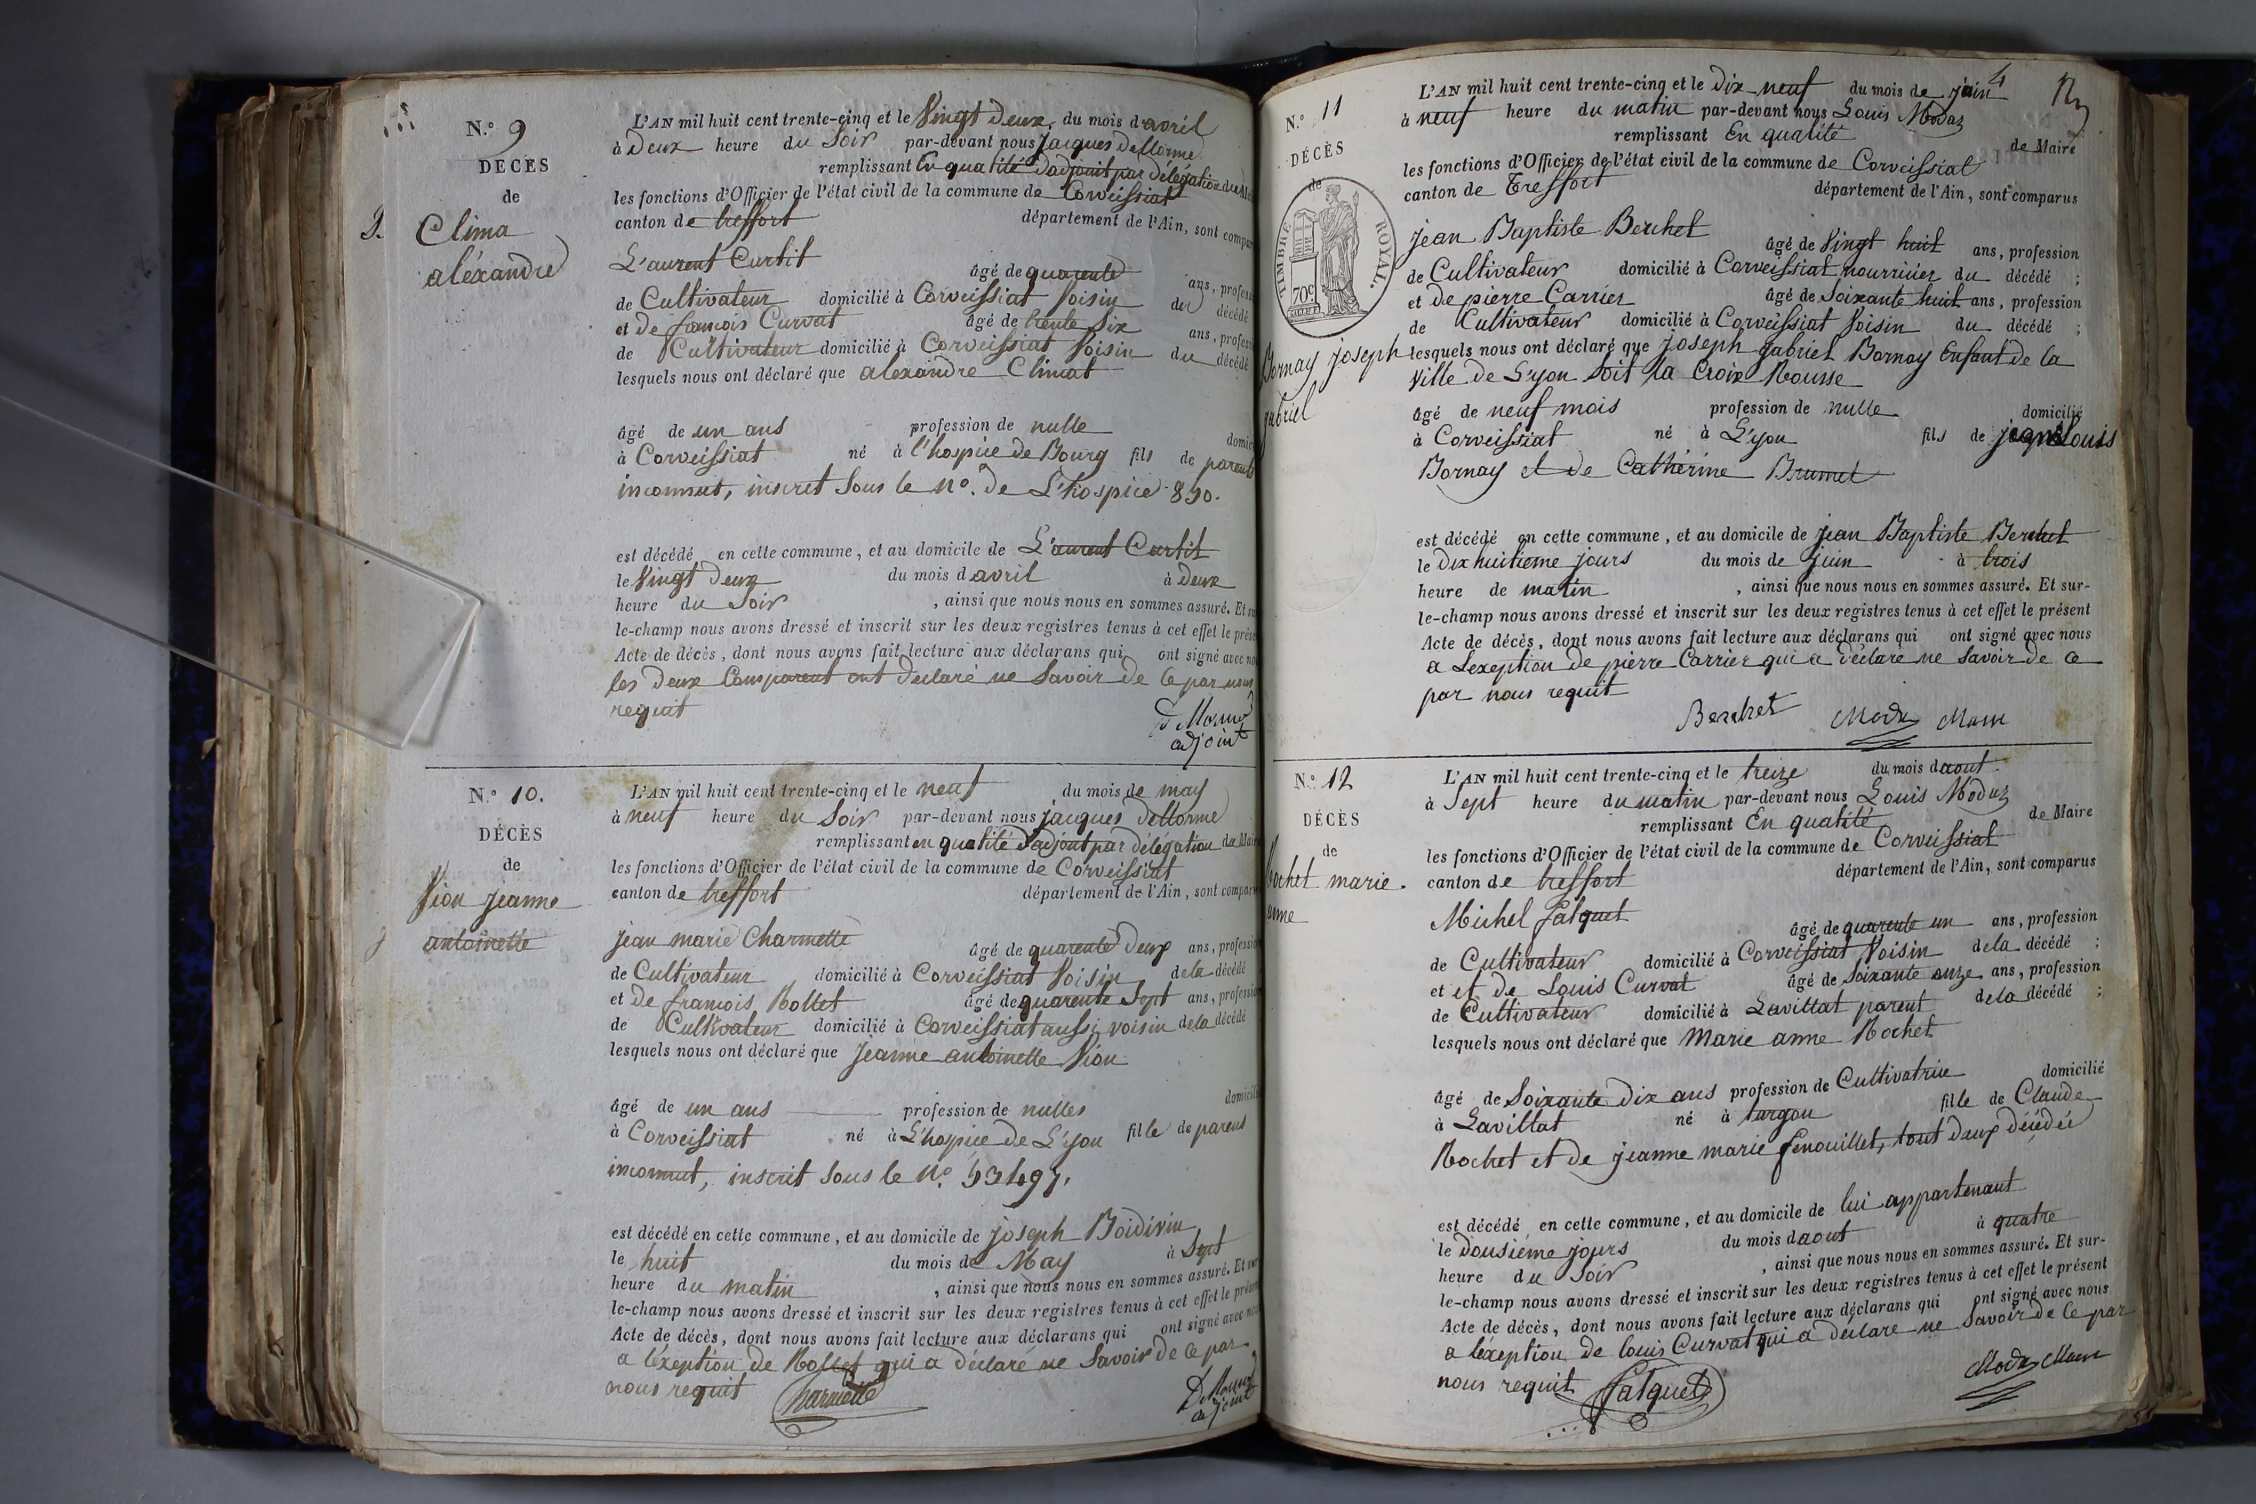 N.° 9
DÉCÈS
de
Clima
aléxandre
L'AN mil huit cent trente-cinq et le Vingt deux du mois d'avril
à Deux heure du Soir par-devant nous Jacques Dellorme
remplissant En qualité d'adjoint par délégation du
les fonctions d'Officier de l'état civil de la commune de Corveissiat
canton de treffort département de l'Ain, sont compar
L'aurent Curtit âgé de quarente ans, profess
de Cultivateur domicilié à Corveissiat Voisin du décédé
et de francois Curvat âgé de trente Six ans, profess
de Cultivateur domicilié à Corveissiat Voisin du décédé
lesquels nous ont déclaré que alexandre Climat
âgé de un ans profession de nulle domic
à Corveissiat né à l'hospice de Bourg fils de parents
inconnut, inscrit Sous le N°. de L'hospice 830.
est décédé en cette commune, et au domicile de L'aurent Curtit
le Vingt Deux du mois d avril à Deux
heure du Soir , ainsi que nous nous en sommes assuré. Et su
le-champ nous avons dressé et inscrit sur les deux registres tenus à cet effet le prése
Acte de décès, dont nous avons fait lecture aux déclarans qui ont signé avec no
les deux Comparent ont Déclaré ne Savoir de ce par nous
requit
adjoint
N.° 10.
DÉCÈS
de
Vion Jeanne
antoinette
L'AN mil huit cent trente-cinq et le neuf du mois de may
à neuf heure du Soir par-devant nous jacques Dellorme
remplissant en qualité d'adjoint par délégation du Maire
les fonctions d'Officier de l'état civil de la commune de Corveissiat
canton de treffort département de l'Ain, sont compar
Jean marie Charmette âgé de quarente Deux ans, professio
de Cultivateur domicilié à Corveissiat Voisin de la décédé
et de francois Rollet âgé de quarente Sept ans, professio
de Cultivateur domicilié à Corveissiat aussi voisin de la décédé
lesquels nous ont déclaré que Jeanne antoinette Vion
âgé de un ans profession de nulles domicili
à Corveissiat né à L'hospice de L'yon fille de parens
inconnut, inscrit Sous le N°.
est décédé en cette commune, et au domicile de joseph Boidivin
le huit du mois de May à Sept
heure du matin , ainsi que nous nous en sommes assuré. Et sur
le-champ nous avons dressé et inscrit sur les deux registres tenus à cet effet le présen
Acte de décès, dont nous avons fait lecture aux déclarans qui ont signé avec no
a léxeption de Rollet qui a déclaré ne Savoir de ce par
nous requit Charmette
adjoint
4
N.° 11
DÉCÈS
de
TIMBRE ROYAL.
70c
Bornay joseph
gabriel
L'AN mil huit cent trente-cinq et le Dix neuf du mois de juin
à neuf heure du matin par-devant nous Louis Modas
remplissant En qualité de Maire
les fonctions d'Officier de l'état civil de la commune de Corveissiat
canton de Treffort département de l'Ain, sont comparus
Jean Baptiste Berchet âgé de Vingt huit ans, profession
de Cultivateur domicilié à Corveissiat nourricier du décédé ;
et de pierre Carrier âgé de Soixante huit ans, profession
de Cultivateur domicilié à Corveissiat Voisin du décédé ;
lesquels nous ont déclaré que joseph gabriel Bornay Enfant de la
Ville de L'yon Soit la Croix Rousse
âgé de neuf mois profession de nulle domicilié
à Corveissiat né à L'yon fils de Louis
Bornay et de Cathérine Brumet
est décédé en cette commune, et au domicile de Jean Baptiste Berchet
le dix huitieme jours du mois de juin à trois
heure de matin , ainsi que nous nous en sommes assuré. Et sur-
le-champ nous avons dressé et inscrit sur les deux registres tenus à cet effet le présent
Acte de décès, dont nous avons fait lecture aux déclarans qui ont signé avec nous
a Lexeption de pierre Carrier qui a déclaré ne Savoir de ce
par nous requit
Berchet
N.° 12
DÉCÈS
de
Rochet marie
anne
L'AN mil huit cent trente-cinq et le treize du mois d aout
à Sept heure du matin par-devant nous Louis Modas
remplissant En qualité de Maire
les fonctions d'Officier de l'état civil de la commune de Corveissiat
canton de treffort département de l'Ain, sont comparus
Michel falquet âgé de quarente un ans, profession
de Cultivateur domicilié à Corveissiat Voisin de la décédé ;
et et de Louis Curvat âgé de Soixante onze ans, profession
de Cultivateur domicilié à Lavillat parent de la décédé ;
lesquels nous ont déclaré que Marie anne Rochet
âgé de Soixante dix ans profession de Cultivatrice domicilié
à Lavillat né à targon fille de Claude
Rochet et de jeanne marie fenouillet, tout Deux décédée
est décédé en cette commune, et au domicile de lui appartenant
le Dousiéme jours du mois d aout à quatre
heure du Soir , ainsi que nous nous en sommes assuré. Et sur-
le-champ nous avons dressé et inscrit sur les deux registres tenus à cet effet le présent
Acte de décès, dont nous avons fait lecture aux déclarans qui ont signé avec nous
a léxeption de louis Curvat qui a déclaré ne Savoir de ce par
nous requit falquet